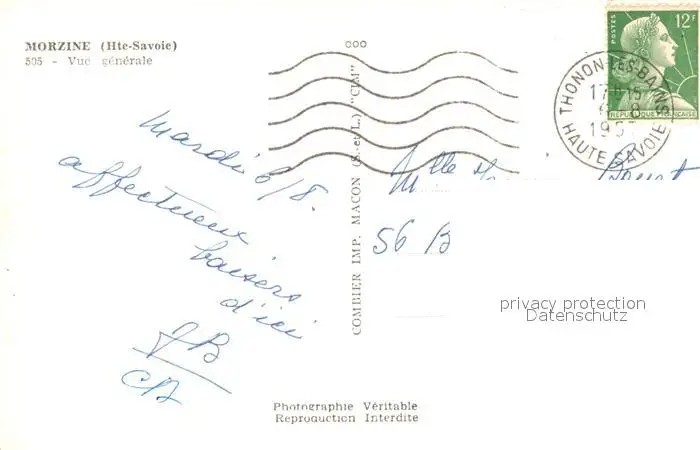 MORZINE (Hte-Savoie)
505 - Vue générale
Mardi 6/8.
affectueux
baisers
d'ici
JB
CB
COMBIER IMP. MACON (S.-et-L.) "CIM"
POSTES 12F
REPUBLIQUE FRANÇAISE
THONON-LES-BAINS
HAUTE SAVOIE
Mlle
56 B
privacy protection
Datenschutz
Photographie Véritable
Reproduction Interdite